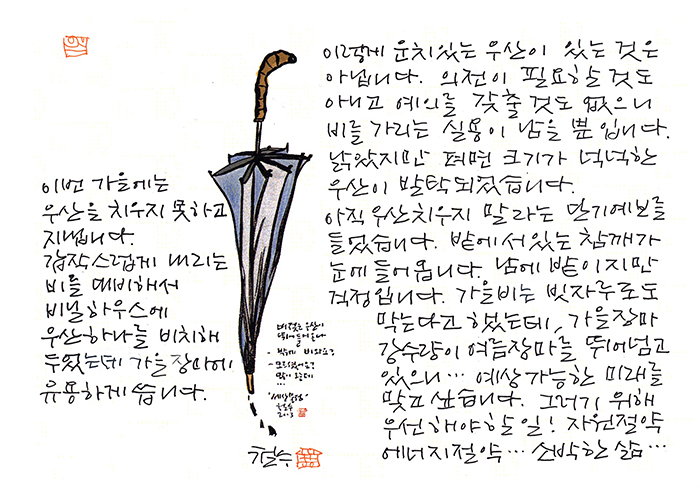 이번 가을에는
우산을 치우지 못하고
지냅니다.
갑작스럽게 내리는
비를 대비해서
비닐하우스에
우산하나를 비치해
두었는데 가을장마에
유용하게 씁니다.
이렇게 운치있는 우산이 있는 것은
아닙니다. 의전이 필요할 것도
아니고 예의를 갖출 것도 없으니
비를 가리는 실용이 남을 뿐입니다.
낡았지만 펴면 크기가 넉넉한
우산이 발탁되었습니다.
아직 우산치우지 말라는 일기예보를
들었습니다. 밭에 서있는 참깨가
눈에 들어옵니다. 남에 밭이지만
걱정입니다. 가을비는 빗자루로도
막는다고 했는데, 가을장마
강수량이 여름장마를 뛰어넘고
있으니… 예상 가능한 미래를
맞고 싶습니다. 그러기 위해
우선해야할 일! 자원절약
에너지절약… 소박한 삶…
우산이
밖에 비와요?
모르셨어요?
많이 오는데
…
철수